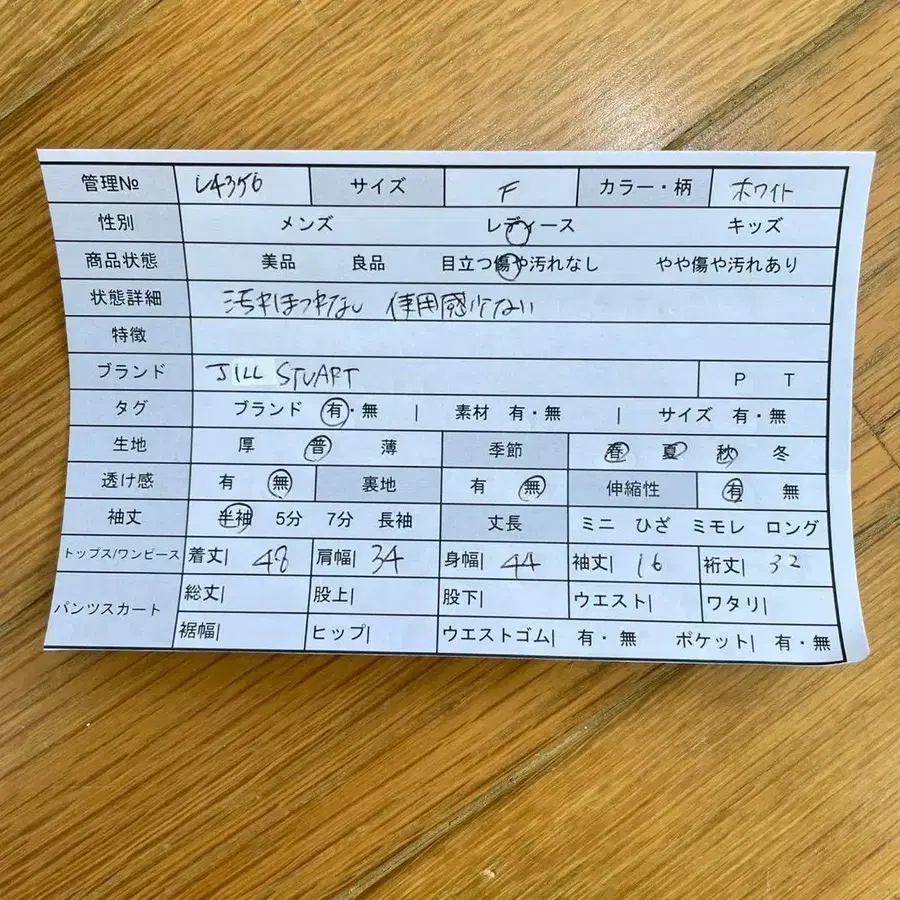 管理№ L4356 サイズ F カラー・柄 ホワイト
性別 メンズ レディース キッズ
商品状態 美品 良品 目立つ傷や汚れなし やや傷や汚れあり
状態詳細 汚れほつれなし 使用感少ない
特徴
ブランド JILL STUART P T
タグ ブランド 有・無 | 素材 有・無 | サイズ 有・無
生地 厚 普 薄 季節 春 夏 秋 冬
透け感 有 無 裏地 有 無 伸縮性 有 無
袖丈 半袖 5分 7分 長袖 丈長 ミニ ひざ ミモレ ロング
トップス/ワンピース 着丈| 48 肩幅| 34 身幅| 44 袖丈| 16 裄丈| 32
パンツスカート 総丈| 股上| 股下| ウエスト| ワタリ|
裾幅| ヒップ| ウエストゴム| 有・無 ポケット| 有・無